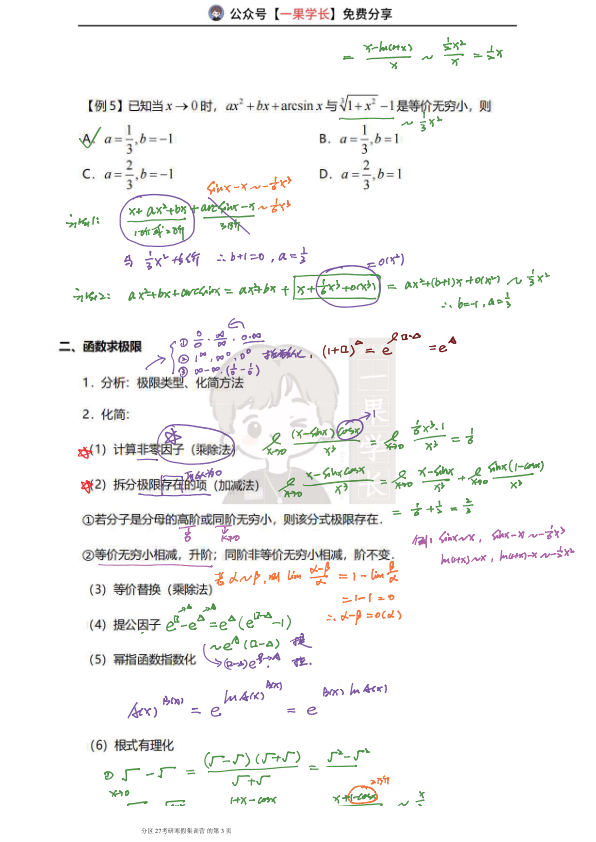 公众号【一果学长】免费分享
= (x-ln(1+x))/x ~ (½x²)/x = ½x
【例 5】已知当 x → 0 时，ax² + bx + arcsin x 与 ∛(1+x²) − 1 是等价无穷小，则
~ ⅓x²
A. a = 1/3, b = −1 B. a = 1/3, b = 1
C. a = 2/3, b = −1 D. a = 2/3, b = 1
sinx-x ~ -⅙x³
x+ax²+bx + arcsinx-x ~ ⅙x³
3阶
∴ b+1=0, a=⅓
=o(x²)
ax²+bx+arcsinx = ax²+bx + x+⅙x³+o(x³) = ax²+(b+1)x+o(x²) ~ ⅓x²
∴ b=-1, a=⅓
二、函数求极限
① 0/0 · ∞/∞ · 0·∞
② 1^∞, ∞⁰, 0⁰
③ ∞-∞
1．分析：极限类型、化简方法
2．化简：
（1）计算非零因子（乘除法）
lim x→0 (x-sinx)cosx/x³ = lim x→0 ⅙x³·1/x³ = ⅙
（2）拆分极限存在的项（加减法）
lim x→0 (x-sinxcosx)/x³ = lim x→0 (x-sinx)/x³ + lim x→0 sinx(1-cosx)/x³
= ⅙+½ = ⅔
①若分子是分母的高阶或同阶无穷小，则该分式极限存在.
②等价无穷小相减，升阶；同阶非等价无穷小相减，阶不变.
例: sinx~x, sinx-x ~ -⅙x³
ln(1+x)~x, ln(1+x)-x ~ -½x²
（3）等价替换（乘除法）
若 α~β, 则 lim (α-β)/α = 1-lim β/α
=1-1=0
∴ α-β=o(α)
（4）提公因子
（5）幂指函数指数化
A(x)^B(x) = e^(lnA(x)^B(x)) = e^(B(x)lnA(x))
（6）根式有理化
① √-√ = (√-√)(√+√)/(√+√) = (√²-√²)
x→0
1+x-cosx
x+1-cosx
分区 27考研寒假集训营 的第 3 页